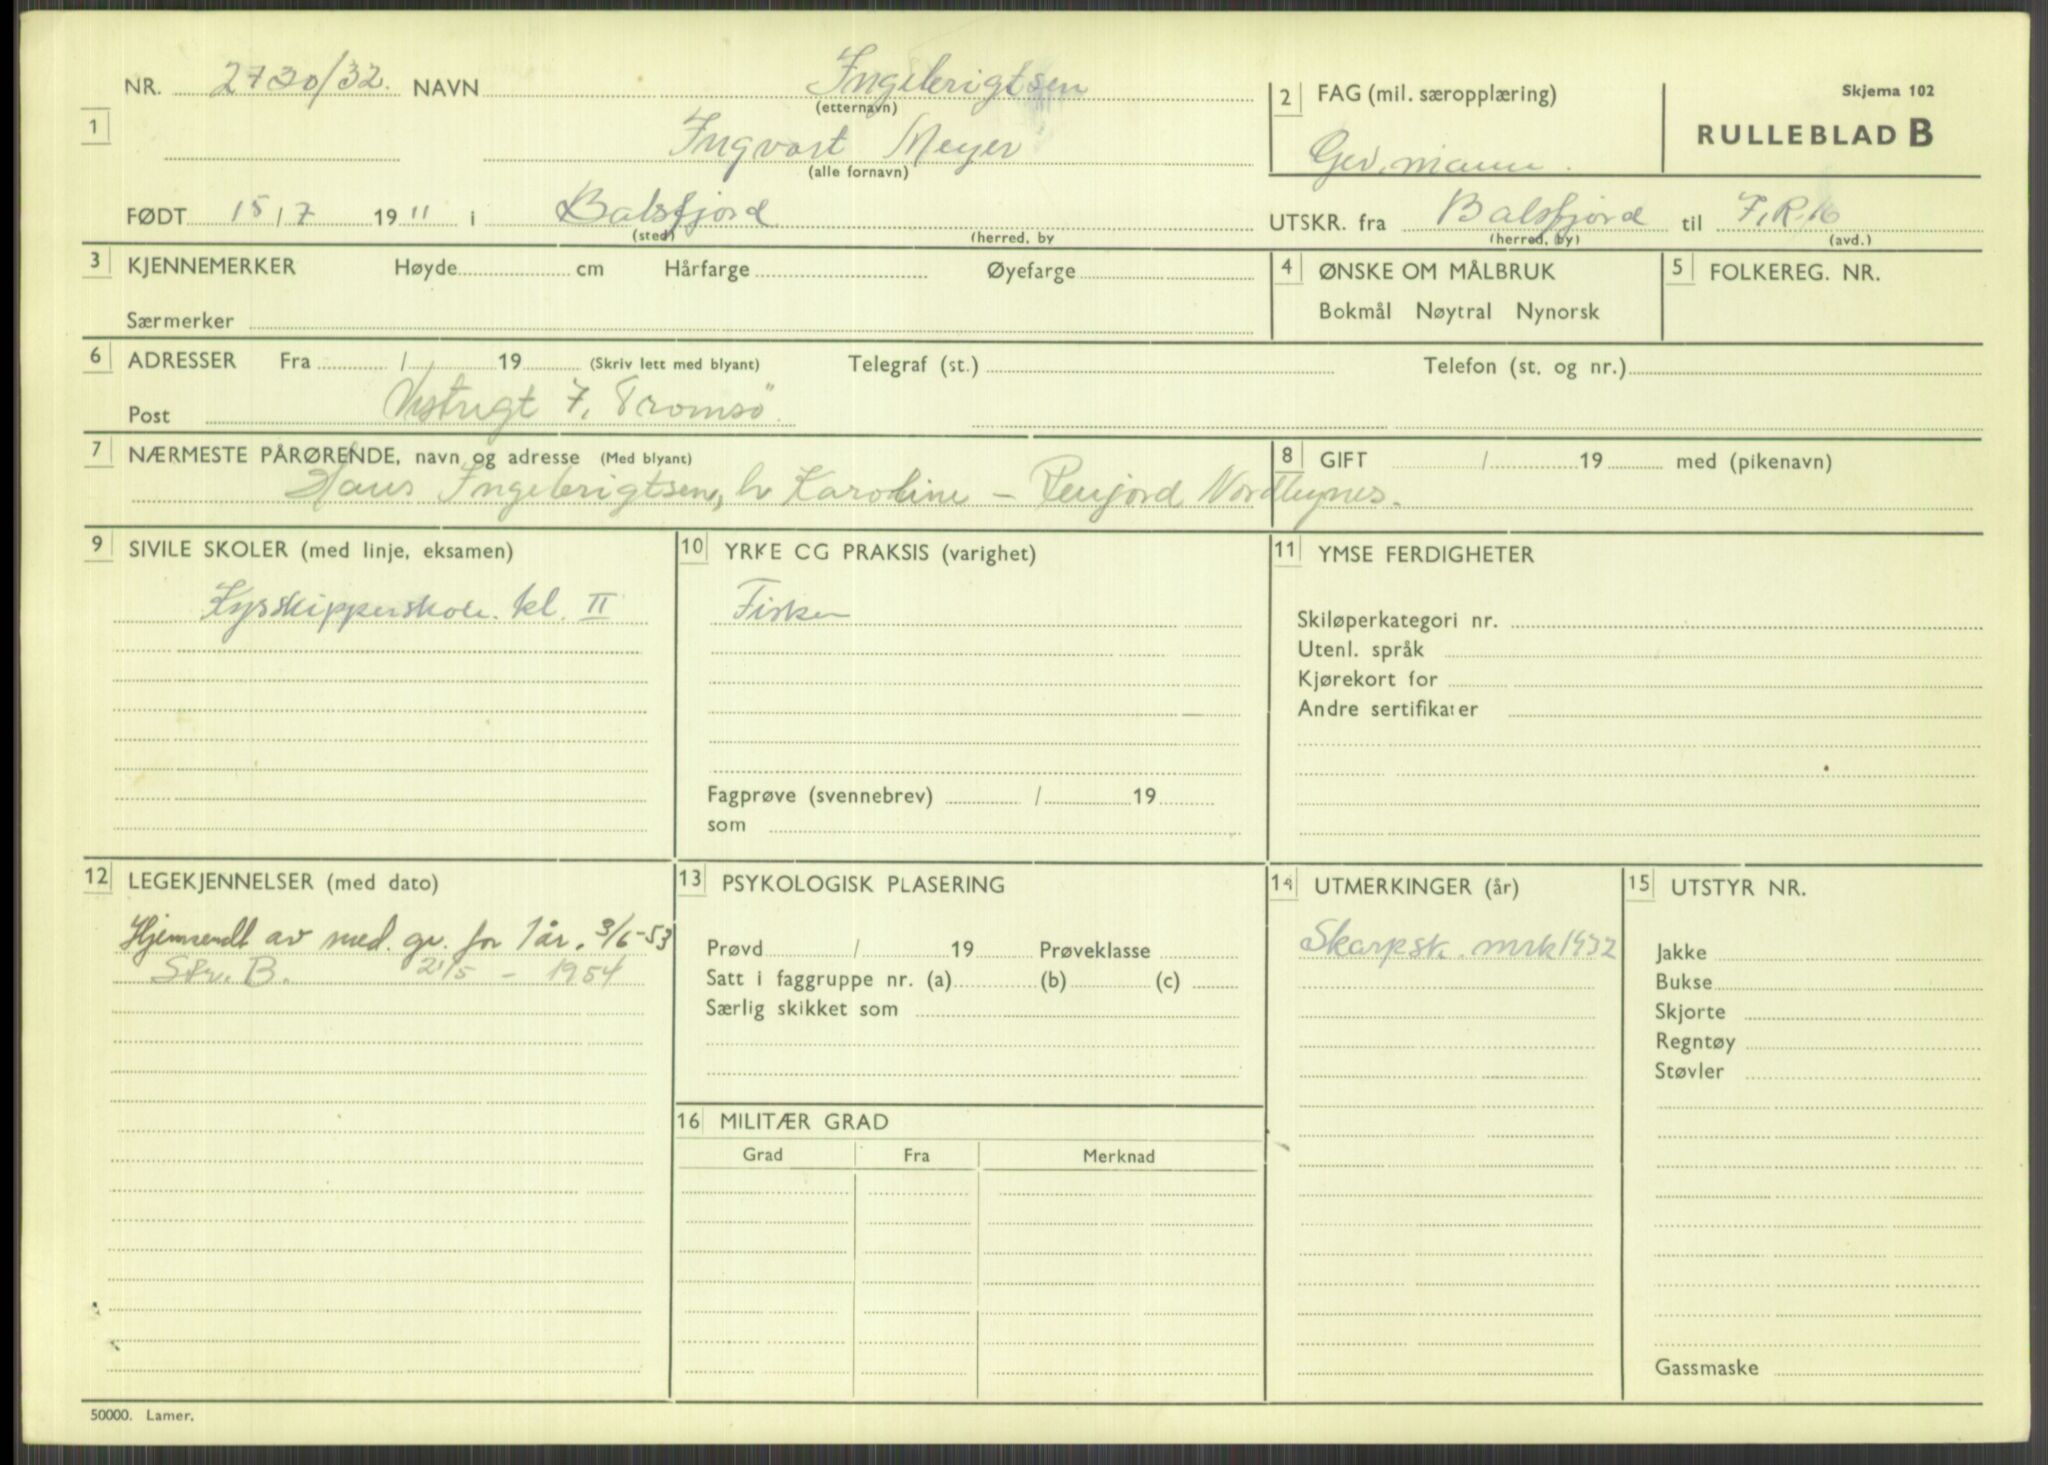 NR. 2730/32. NAVN Ingebrigtsen
(etternavn)
1 Ingvart Meyer
(alle fornavn)
2 FAG (mil. særopplæring)
Gev. mann.
Skjema 102
RULLEBLAD B
FØDT 15/7 1911 i Balsfjord
(sted) (herred, by
UTSKR. fra Balsfjord til F.R.16
(herred, by) (avd.)
3 KJENNEMERKER Høyde cm Hårfarge Øyefarge
Særmerker
4 ØNSKE OM MÅLBRUK
Bokmål Nøytral Nynorsk
5 FOLKEREG. NR.
6 ADRESSER Fra / 19 (Skriv lett med blyant) Telegraf (st.) Telefon (st. og nr.)
Post Vestregt 7, Tromsö.
7 NÆRMESTE PÅRØRENDE, navn og adresse (Med blyant)
8 GIFT / 19 med (pikenavn)
Hans Ingebrigtsen, h Karoline –
9 SIVILE SKOLER (med linje, eksamen)
Kysskipperskole. kl. II
10 YRKE CG PRAKSIS (varighet)
Fisker
Fagprøve (svennebrev) / 19
som
11 YMSE FERDIGHETER
Skiløperkategori nr.
Utenl. språk
Kjørekort for
Andre sertifikater
12 LEGEKJENNELSER (med dato)
Hjemsendt av med. gr. for 1 år. 3/6-53
Str. B. 21/5 – 1954
13 PSYKOLOGISK PLASERING
Prøvd / 19 Prøveklasse
Satt i faggruppe nr. (a) (b) (c)
Særlig skikket som
14 UTMERKINGER (år)
Skarpsk. mrk 1932
15 UTSTYR NR.
Jakke
Bukse
Skjorte
Regntøy
Støvler
Gassmaske
16 MILITÆR GRAD
Grad Fra Merknad
50000. Lamer.